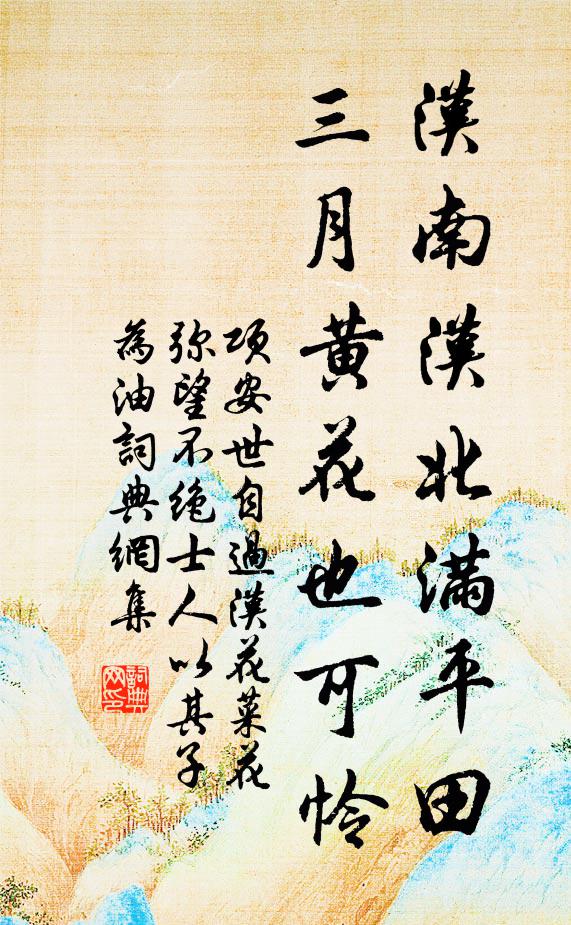 漢南漢北滿平田
三月黃花也可怜
項安世自過漢花菜花
弥望不絶士人以其子
為油詞典網集
詞典
网印